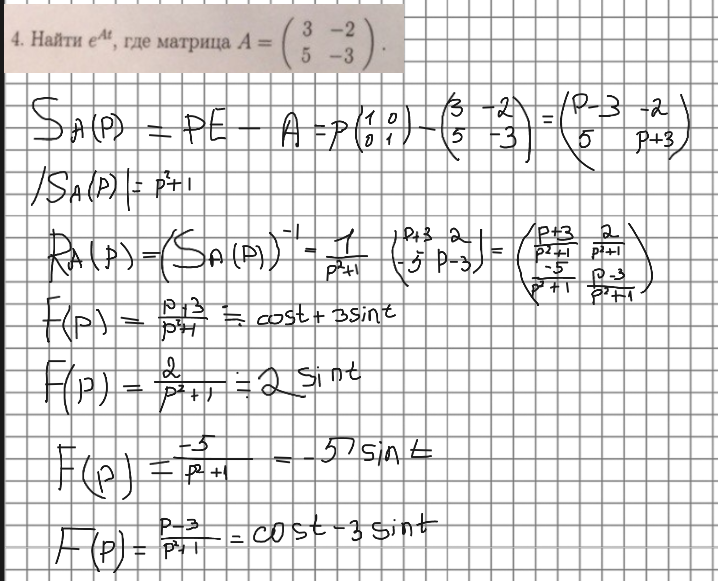 4. Найти e^{At}, где матрица A = ( 3 −2 ; 5 −3 ).
S_A(p) = pE − A = p(1 0 ; 0 1) − (3 −2 ; 5 −3) = (p−3 −2 ; 5 p+3)
|S_A(p)| = p²+1
R_A(p) = (S_A(p))^{-1} = 1/(p²+1) (p+3 2 ; -5 p-3) = ((p+3)/(p²+1) 2/(p²+1) ; -5/(p²+1) (p-3)/(p²+1))
F(p) = (p+3)/(p²+1) ≓ cost + 3sint
F(p) = 2/(p²+1) ≓ 2 sint
F(p) = -5/(p²+1) = -5 sin t
F(p) = (p-3)/(p²+1) = cost - 3 sint